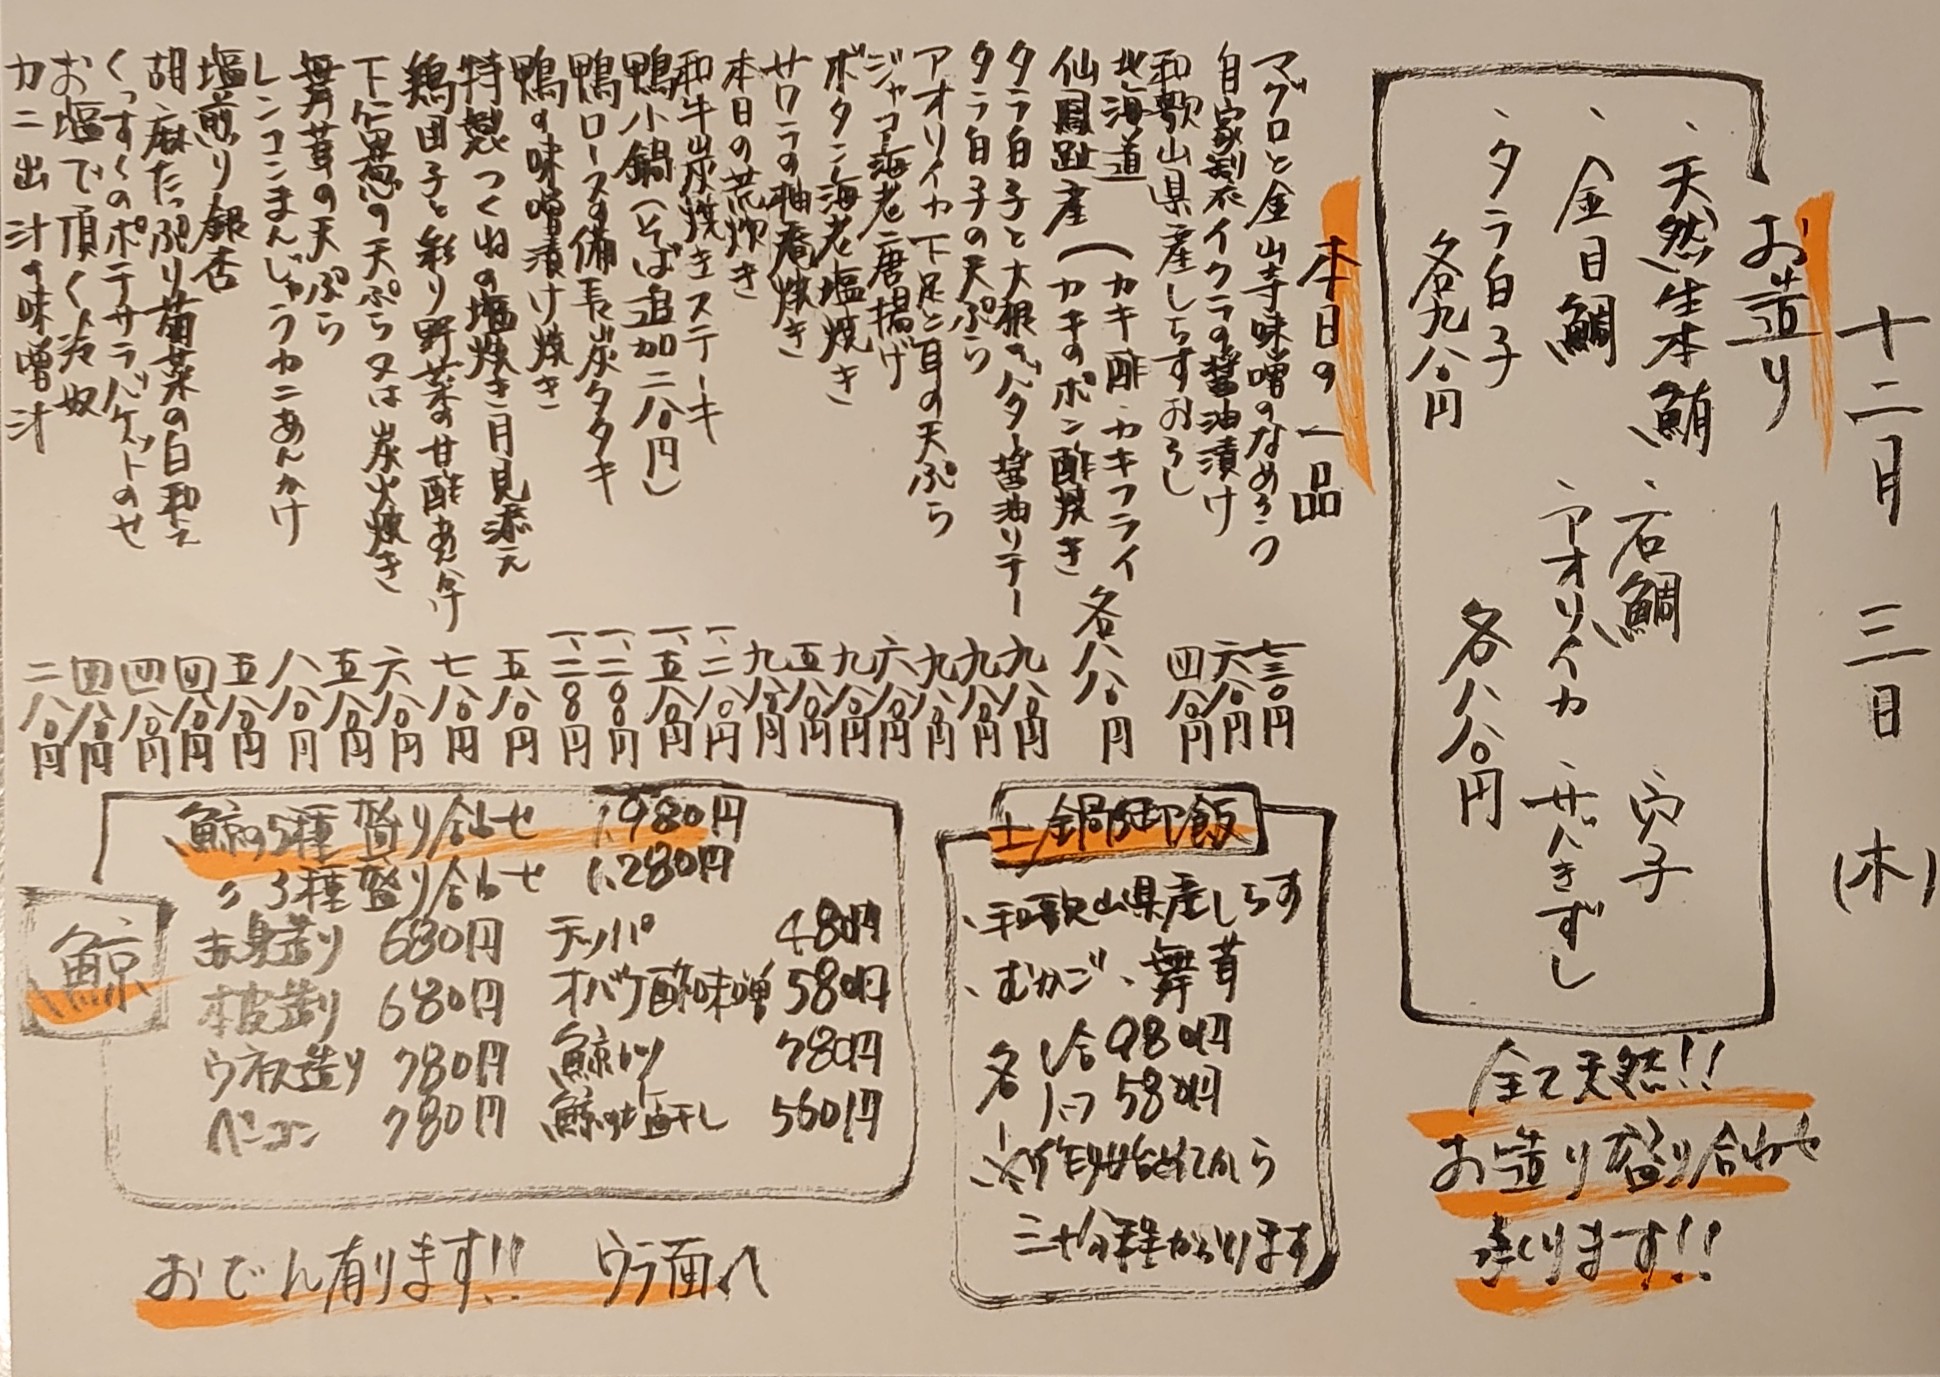 十二月 三日 (木)
お造り
、天然生本鮪 、石鯛 、穴子
、金目鯛 、アオリイカ 、サバきずし
、タラ白子 各八八〇円
各九八〇円
全て天然!!
お造り盛り合わせ
承ります!!
本日の一品
マグロと金山寺味噌のなめろう 七三〇円
自家製イクラの醤油漬け 六八〇円
和歌山県産しらすおろし 四八〇円
北海道 (カキ酢・カキフライ
仙鳳趾産 (カキのポン酢焼き 各八八〇円
タラ白子と大根のバター醤油ソテー 九八〇円
タラ白子の天ぷら 九八〇円
アオリイカ下足と耳の天ぷら 九八〇円
ジャコ海老唐揚げ 六八〇円
ボタン海老塩焼き 九八〇円
サワラの柚庵焼き 五八〇円
本日の荒炊き 九八〇円
和牛炭焼きステーキ 一、二八〇円
鴨小鍋(そば追加二八〇円) 一、五八〇円
鴨ロースの備長炭タタキ 一、二〇〇円
鴨の味噌漬け焼き 一、二〇〇円
特製つくねの塩焼き月見添え 五八〇円
鶏団子と彩り野菜の甘酢あんかけ 七八〇円
下仁田葱の天ぷら又は炭火焼き 六八〇円
舞茸の天ぷら 五八〇円
レンコンまんじゅうカニあんかけ 八八〇円
塩煎り銀杏 五八〇円
胡麻たっぷり菊菜の白和え 四八〇円
くっすくのポテサラバゲットのせ 四八〇円
お塩で頂く冷奴 四八〇円
カニ出汁の味噌汁 二八〇円
土鍋御飯
、和歌山県産しらす
、むかご、舞茸
各 1合 980円
1/2 580円
※作り始めてから
三十分程かかります
鯨
鯨の5種盛り合わせ 1,980円
〃 3種盛り合わせ 1,280円
赤身造り 680円
本皮造り 680円
ウネス造り 780円
ベーコン 780円
テッパ 480円
オバケ酢味噌 580円
鯨カツ 780円
鯨の塩干し 560円
おでん有ります!! ウラ面へ